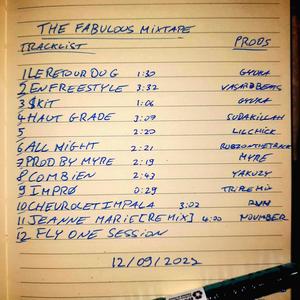 THE FABULOUS MIXTAPE
TRACKLIST PRODS
1 LE RETOUR DU G 1:30 GYDRA
2 EN FREESTYLE 3:32 VASARD BEATS
3 $KIT 1:06 GYDRA
4 HAUT GRADE 3:09 SUDAKILLAH
5 2:20 LILCHICK
6 ALL NIGHT 2:21 ROBZONTHETRACK
7 PROD BY MYRE 2:19 MYRE
8 COMBIEN 2:43 YAKUZY
9 IMPRØ 0:29 TRIPE MIX
10 CHEVROLET IMPALA 3:02
11 JEANNE MARIE [REMIX] 4:20 NOUMBER
12 FLY ONE SESSION
12/09/2022